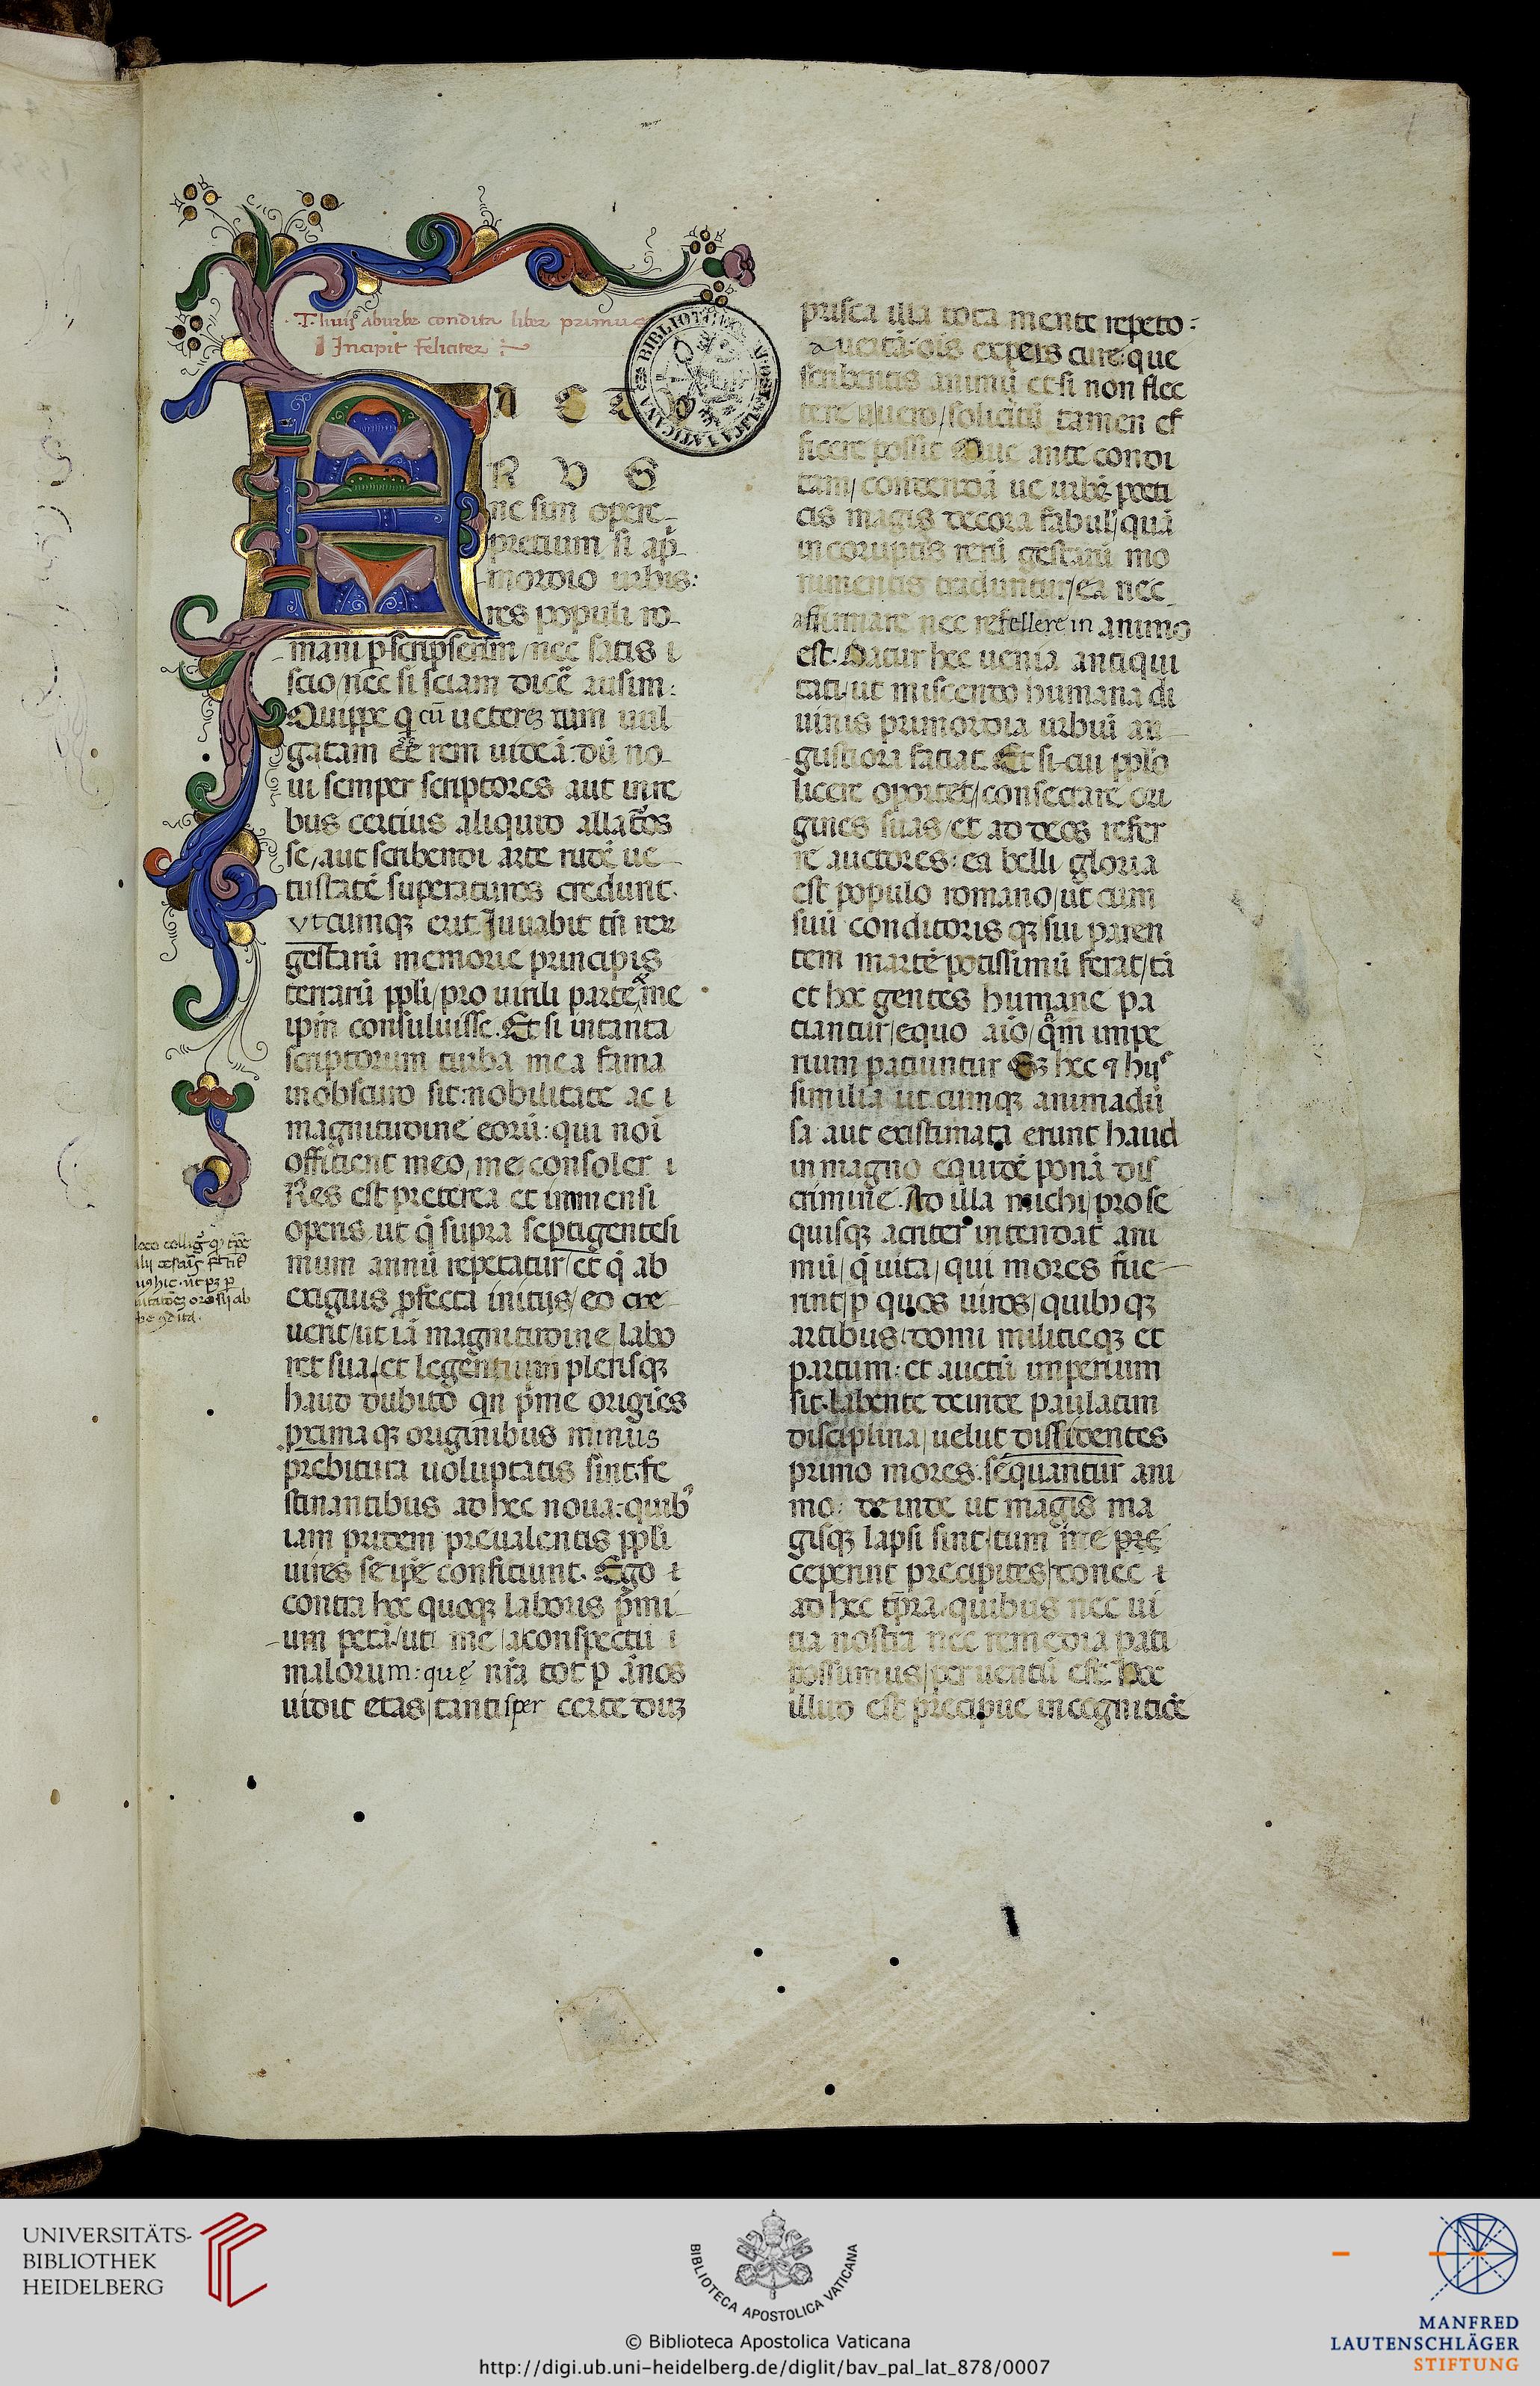 T. liuij ab urbe condita liber primus
Incipit feliciter
F A C T V
R V S
ne sim opere
pretium si ap̄
mordio urbis:
res populi ro
mani p̱scripserim/nec satis i
scio/nec si sciam dicē ausim:
Quippe q cū ueterꝫ tum uul
gatam eē̄ rem uideā. dū no
ui semper scriptores aut in re
bus cercius aliquid allatōs
se, aut scribendi arte rudē ue
tustatē superaturos credunt.
vtcumqꝫ erit Juuabit tn̄ rer
gestarū memorie principis
terrarū ppli/pro uirili parte me
ipm̄ consuluisse. Et si in tanta
scriptorum turba mea fama
in obscuro sit: nobilitate ac i
magnitudine eorū: qui noī
officient meo, me consoler i
Res est preterea et immensi
operis ut q̄ supra septigentesi
mum annū repetatur/et q̄ ab
exiguis p̱fecta initijs/eo cre
uerit/ut iā magnitudine labo
ret sua/et legentium plerisqꝫ
haud dubito qn̄ pͥme origīes
prima qꝫ originibus minus
prebitura uoluptatis sint: fe
stinantibus ad hec noua: quibꝰ
iam pridem preualentis ppli
uires se ipē conficiunt. Ego i
contra hoc quoqꝫ laboris pͥmi
um petā/uti me a conspectu i
malorum: quę nrā tot p̱ ānos
uidit etas/tantisper certe duꝫ
prisca illa tota mente repeto:
auertā: oīs expers cure que
scribentis animū et si non flec
tere a uero/solicitū tamen ef
ficere possit Que ante condi
tam/condendā ue urbē. poeti
cis magis decora fabul̓/quā
incoruptis rerū gestarū mo
numentis traduntur/ea nec
affirmare nec refellere in animo
est. Datur hec uenia antiqui
tati/ut miscendo humana di
uinis primordia urbiū au
gustiora faciat. Et si cui ppl̓o
licere oportet/consecrare ori
gines suas/et ad deos refer
re auctores: ea belli gloria
est populo romano/ut cum
suū conditoris qꝫ sui paren
tem martē potissimū ferat/tā
et hoc gentes humane pa
tiantur/equo aīo/qͣm impe
rium patiuntur Sꝫ hec ⁊ hijˢ
similia ut cumqꝫ animadū
sa aut existimata erunt haud
in magno equidē ponā dis
crimine. Ad illa michi/pro se
quisqꝫ acriter intendat ani
mū/q̄ uita/qui mores fue
rint/p̱ quos uiros/quibꝫ qꝫ
artibus/domi militieqꝫ et
partum: et auctū imperium
sit. labente deinde paulatim
disciplina/uelut dissidentes
primo mores: sequantur ani
mo: deinde ut magis ma
gisqꝫ lapsi sint/tum ire pre
ceperint precipites/donec i
ad hec tp̄ra quibus nec ui
tia nostra nec remedia pati
possumus/peruentū est. Hoc
illud est precipue in cognitiōe
BIBLIOTHECA APOSTOLICA VATICANA
UNIVERSITÄTS-
BIBLIOTHEK
HEIDELBERG
BIBLIOTECA APOSTOLICA VATICANA
© Biblioteca Apostolica Vaticana
http://digi.ub.uni-heidelberg.de/diglit/bav_pal_lat_878/0007
MANFRED
LAUTENSCHLÄGER
STIFTUNG